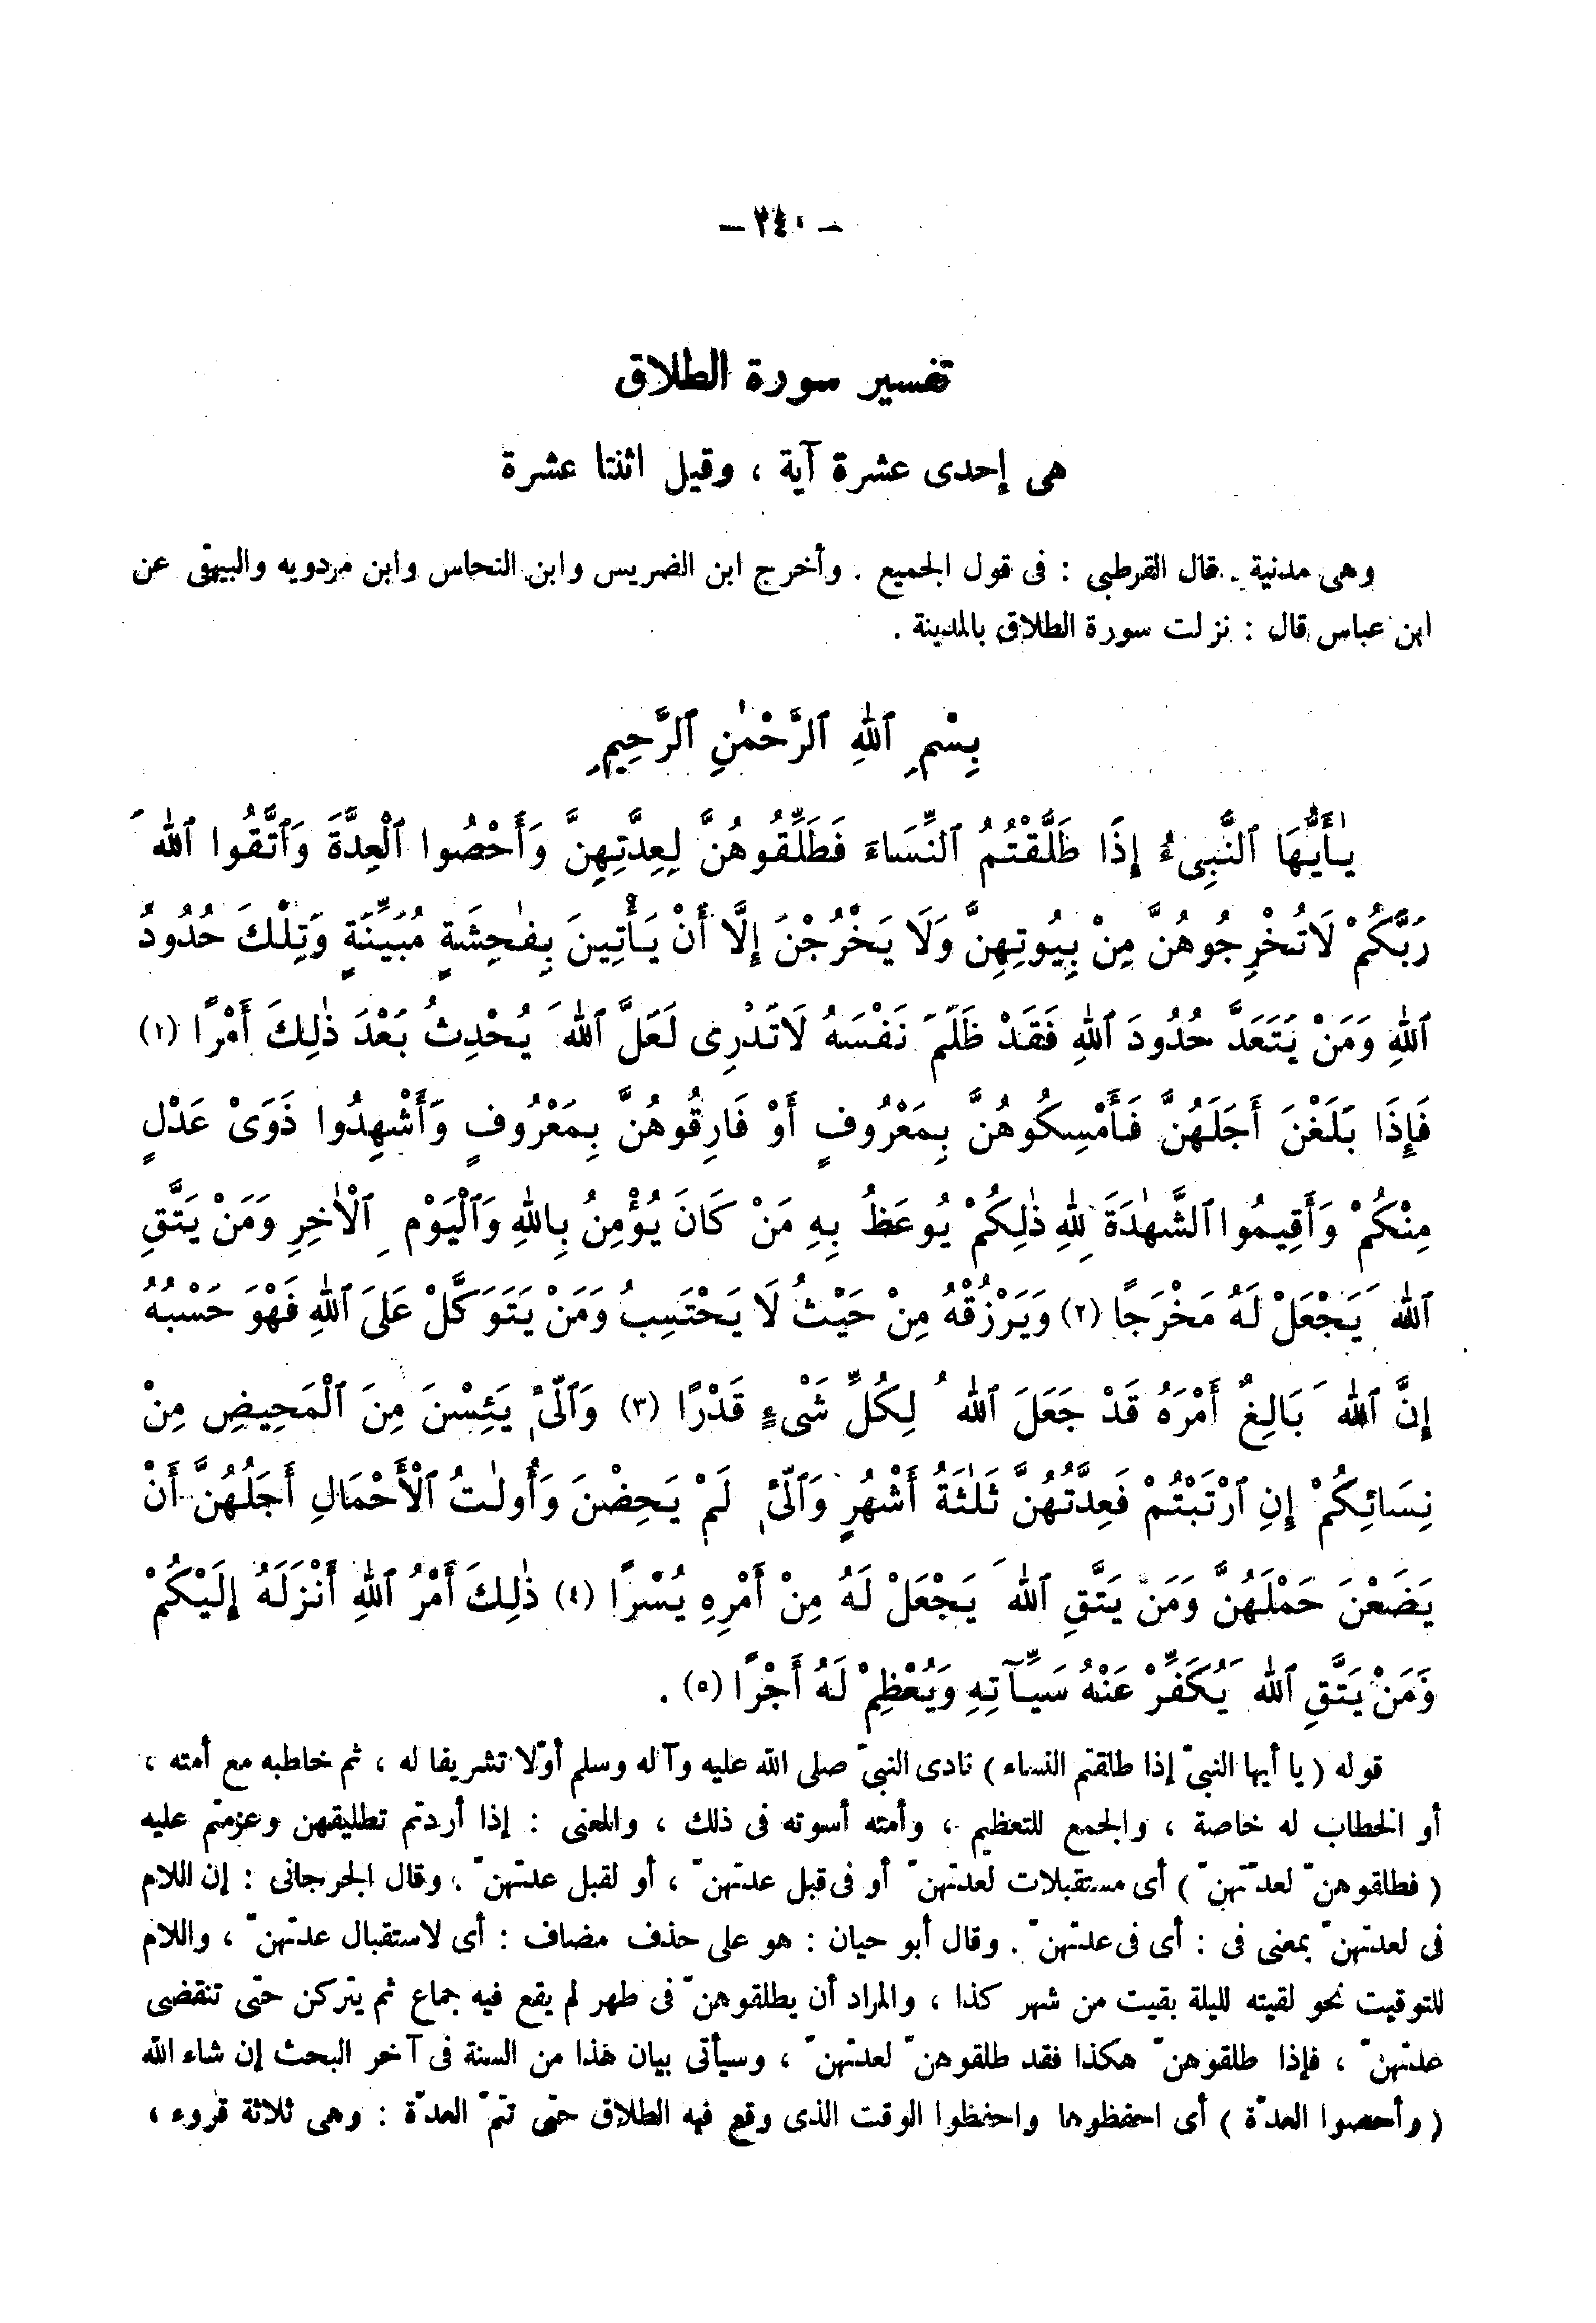 — ٢٤٠ —
تفسير سورة الطلاق
هى إحدى عشرة آية ، وقيل اثنتا عشرة
وهى مدنية . قال القرطبى : فى قول الجميع . وأخرج ابن الضريس وابن النحاس وابن مردويه والبيهقى عن
ابن عباس قال : نزلت سورة الطلاق بالمدينة .
بِسْمِ ٱللهِ ٱلرَّحْمٰنِ ٱلرَّحِيمِ
يٰأَيُّهَا ٱلنَّبِىءُ إِذَا طَلَّقْتُمُ ٱلنِّسَاءَ فَطَلِّقُوهُنَّ لِعِدَّتِهِنَّ وَأَحْصُوا ٱلْعِدَّةَ وَٱتَّقُوا ٱللهَ
رَبَّكُمْ لَاتُخْرِجُوهُنَّ مِنْ بِيُوتِهِنَّ وَلَا يَخْرُجْنَ إِلَّا أَنْ يَأْتِينَ بِفٰحِشَةٍ مُبَيِّنَةٍ وَتِلْكَ حُدُودُ
ٱللهِ وَمَنْ يَتَعَدَّ حُدُودَ ٱللهِ فَقَدْ ظَلَمَ نَفْسَهُ لَاتَدْرِى لَعَلَّ ٱللهَ يُحْدِثُ بَعْدَ ذٰلِكَ أَمْرًا (١)
فَإِذَا بَلَغْنَ أَجَلَهُنَّ فَأَمْسِكُوهُنَّ بِمَعْرُوفٍ أَوْ فَارِقُوهُنَّ بِمَعْرُوفٍ وَأَشْهِدُوا ذَوَىْ عَدْلٍ
مِنْكُمْ وَأَقِيمُوا ٱلشَّهٰدَةَ لِلهِ ذٰلِكُمْ يُوعَظُ بِهِ مَنْ كَانَ يُؤْمِنُ بِاللهِ وَٱلْيَوْمِ ٱلْأٰخِرِ وَمَنْ يَتَّقِ
ٱللهَ يَجْعَلْ لَهُ مَخْرَجًا (٢) وَيَرْزُقْهُ مِنْ حَيْثُ لَا يَحْتَسِبُ وَمَنْ يَتَوَكَّلْ عَلَى ٱللهِ فَهْوَ حَسْبُهُ
إِنَّ ٱللهَ بَالِغٌ أَمْرَهُ قَدْ جَعَلَ ٱللهُ لِكُلِّ شَىْءٍ قَدْرًا (٣) وَٱلّٰىْ يَئِسْنَ مِنَ ٱلْمَحِيضِ مِنْ
نِسَائِكُمْ إِنِ ٱرْتَبْتُمْ فَعِدَّتُهُنَّ ثَلٰثَةُ أَشْهُرٍ وَٱلّٰىْ لَمْ يَحِضْنَ وَأُولٰتُ ٱلْأَحْمَالِ أَجَلُهُنَّ أَنْ
يَضَعْنَ حَمْلَهُنَّ وَمَنْ يَتَّقِ ٱللهَ يَجْعَلْ لَهُ مِنْ أَمْرِهِ يُسْرًا (٤) ذٰلِكَ أَمْرُ ٱللهِ أَنْزَلَهُ إِلَيْكُمْ
وَمَنْ يَتَّقِ ٱللهَ يُكَفِّرْ عَنْهُ سَيِّـَٔاتِهِ وَيُعْظِمْ لَهُ أَجْرًا (٥) .
قوله ( يا أيها النبىّ إذا طلقتم النساء ) نادى النبىّ صلى الله عليه وآله وسلم أوّلا تشريفا له ، ثم خاطبه مع أمته ،
أو الخطاب له خاصة ، والجمع للتعظيم ، وأمته أسوته فى ذلك ، والمعنى : إذا أردتم تطليقهن وعزمتم عليه
( فطلقوهنّ لعدّتهنّ ) أى مستقبلات لعدتهنّ أو فى قبل عدتهنّ ، أو لقبل عدتهنّ . وقال الجرجانى : إن اللام
فى لعدتهنّ بمعنى فى : أى فى عدتهنّ . وقال أبو حيان : هو على حذف مضاف : أى لاستقبال عدتهنّ ، واللام
للتوقيت نحو لقيته لليلة بقيت من شهر كذا ، والمراد أن يطلقوهنّ فى طهر لم يقع فيه جماع ثم يتركن حتى تنقضى
عدتهنّ ، فإذا طلقوهنّ هكذا فقد طلقوهنّ لعدتهنّ ، وسيأتى بيان هذا من السنة فى آخر البحث إن شاء الله
( وأحصوا العدّة ) أى احفظوها واحفظوا الوقت الذى وقع فيه الطلاق حتى تتمّ العدّة : وهى ثلاثة قروء ،